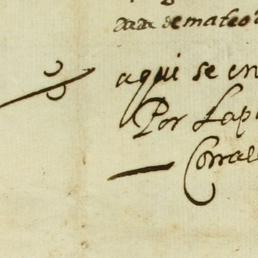 de mateo
aqui se en
Por Lap
Corra